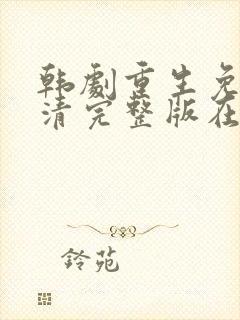 韩劇重生免
清完整版在
鈴苑